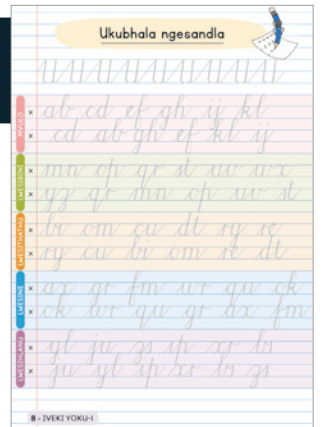 Ukubhala ngesandla
MVULO
× ab cd ef gh ij kl
× cd ab gh ef kl ij
LWESIBINI
× mn op qr st uv wx
× yz qr mn op uv st
LWESITHATHU
× bi om cu dt ry re
× ry cu bi om re dt
LWESINE
× ax gr fm wr qu ok
× ok wr qu gr ax fm
LWESIHLANU
× yl ju zs ip xr bs
× ju yl ip xr bs zs
8 • IVEKI YOKU-1